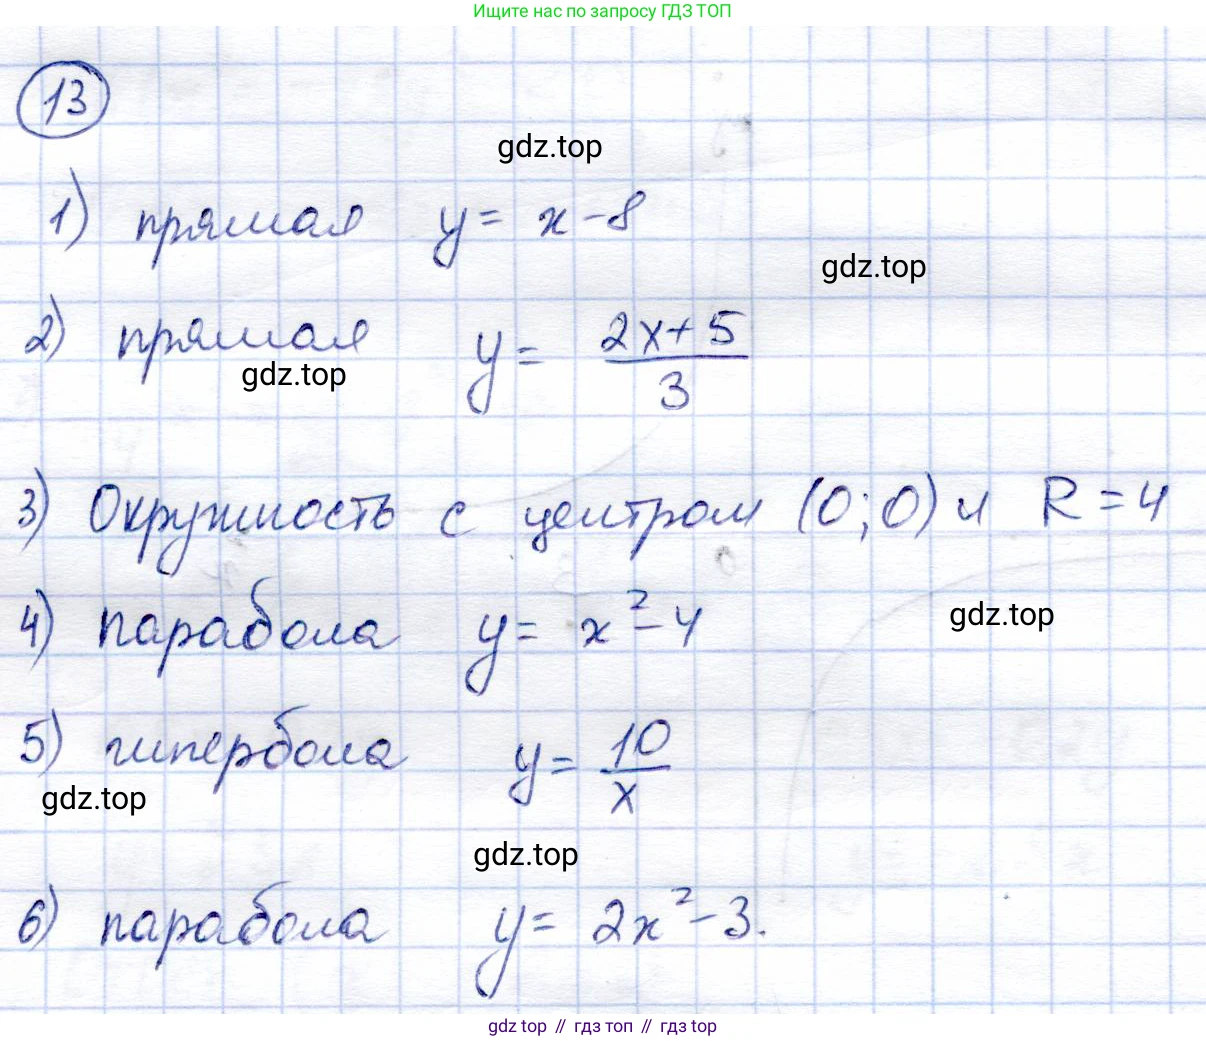 Ищите нас по запросу ГДЗ ТОП
13
gdz.top
1) прямая y = x - 8
gdz.top
2) прямая y = (2x + 5)/3
gdz.top
3) Окружность с центром (0; 0) и R = 4
4) парабола y = x² - 4
gdz.top
5) гипербола y = 10/x
gdz.top
gdz.top
6) парабола y = 2x² - 3.
gdz top // гдз топ // гдз top